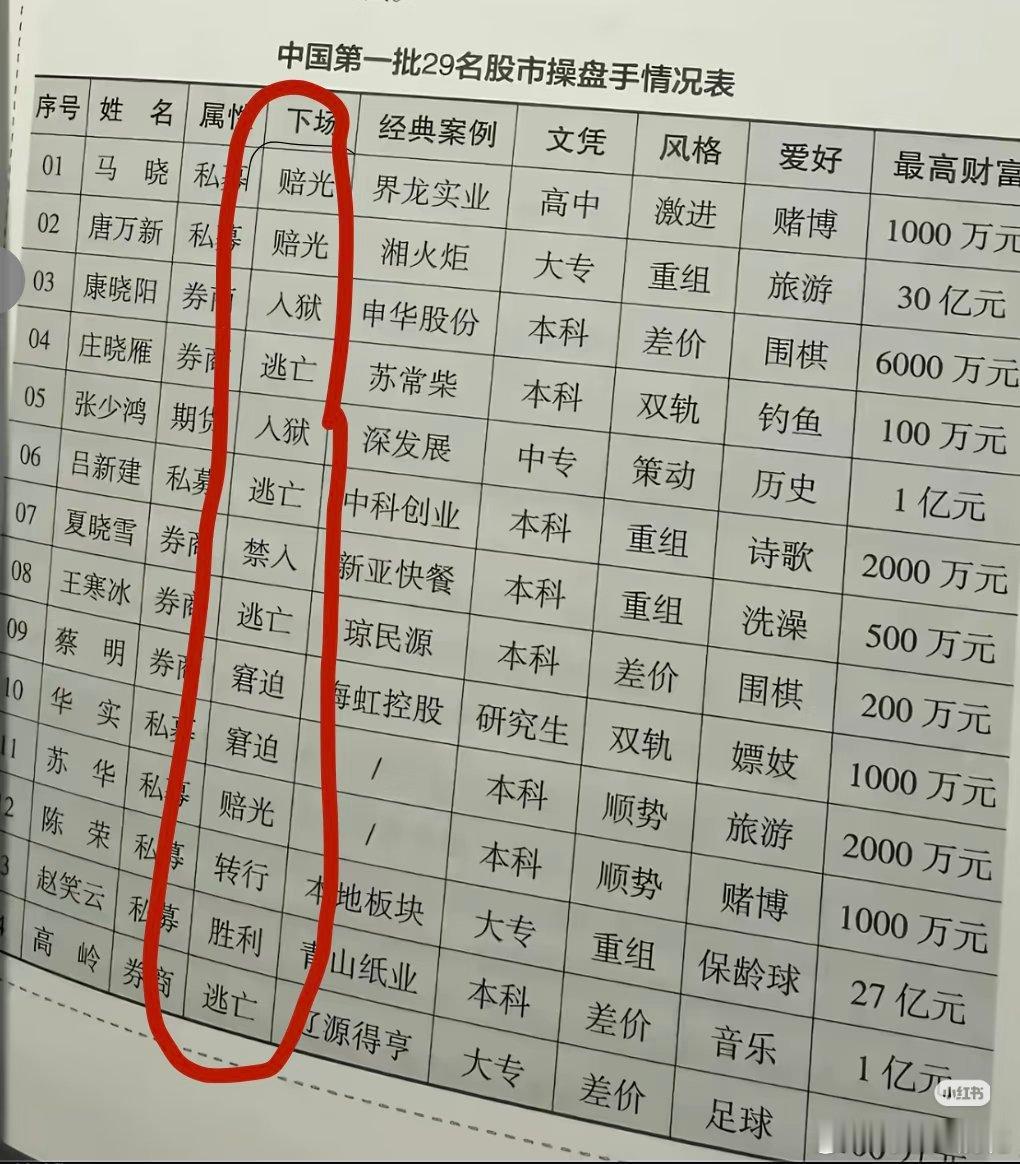 中国第一批29名股市操盘手情况表
序号 姓名 属性 下场 经典案例 文凭 风格 爱好 最高财富
01 马晓 私募 赔光 界龙实业 高中 激进 赌博 1000万元
02 唐万新 私募 赔光 湘火炬 大专 重组 旅游 30亿元
03 康晓阳 券商 入狱 申华股份 本科 差价 围棋 6000万元
04 庄晓雁 券商 逃亡 苏常柴 本科 双轨 钓鱼 100万元
05 张少鸿 期货 入狱 深发展 中专 策动 历史 1亿元
06 吕新建 私募 逃亡 中科创业 本科 重组 诗歌 2000万元
07 夏晓雪 券商 禁入 新亚快餐 本科 重组 洗澡 500万元
08 王寒冰 券商 逃亡 琼民源 本科 差价 围棋 200万元
09 蔡明 券商 窘迫 海虹控股 研究生 双轨 嫖妓 1000万元
10 华实 私募 窘迫 / 本科 顺势 旅游 2000万元
11 苏华 私募 赔光 / 本科 顺势 赌博 1000万元
2 陈荣 私募 转行 本地板块 大专 重组 保龄球 27亿元
3 赵笑云 私募 胜利 青山纸业 本科 差价 音乐 1亿元
4 高岭 券商 逃亡 辽源得亨 大专 差价 足球
小红书